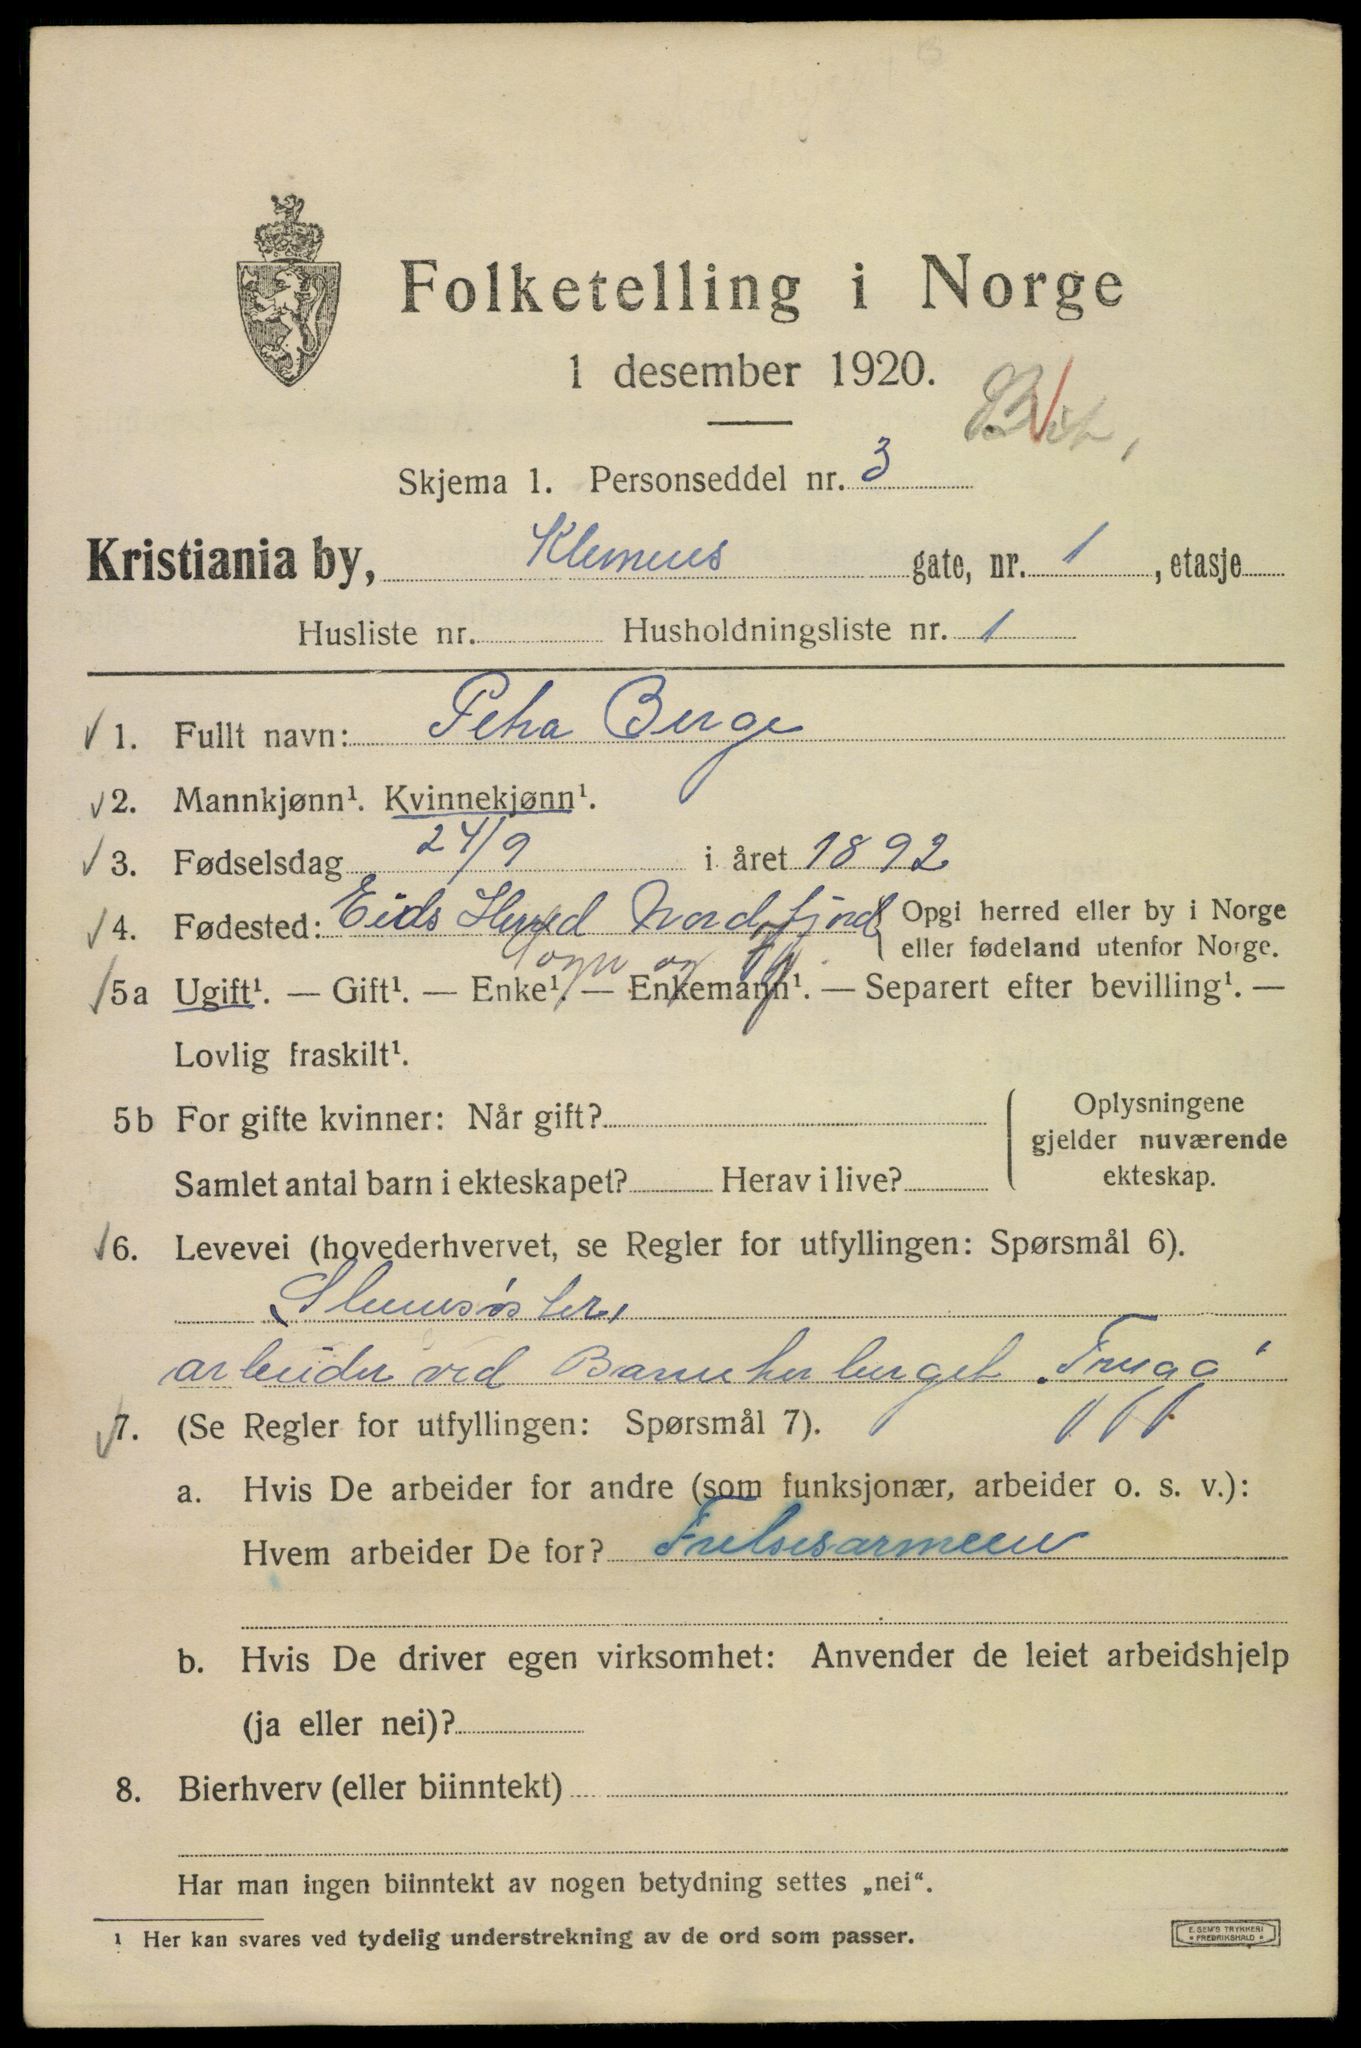 Folketelling i Norge
1 desember 1920.
Skjema 1. Personseddel nr. 3
Kristiania by, Klemens gate, nr. 1, etasje
Husliste nr. Husholdningsliste nr. 1
1. Fullt navn: Petra Berge
2. Mannkjønn¹. Kvinnekjønn¹.
3. Fødselsdag 24/9 i året 1892
4. Fødested: Eids Herred Nordfjord Opgi herred eller by i Norge
eller fødeland utenfor Norge.
Sogn og Fj.
5a Ugift¹. — Gift¹. — Enke¹. — Enkemann¹. — Separert efter bevilling¹. —
Lovlig fraskilt¹.
5b For gifte kvinner: Når gift? Oplysningene
gjelder nuværende
Samlet antal barn i ekteskapet? Herav i live? ekteskap.
6. Levevei (hovederhvervet, se Regler for utfyllingen: Spørsmål 6).
Slumsøster,
arbeider ved Barneherberget
7. (Se Regler for utfyllingen: Spørsmål 7).
a. Hvis De arbeider for andre (som funksjonær, arbeider o. s. v.):
Hvem arbeider De for? Frelsesarmeen
b. Hvis De driver egen virksomhet: Anvender de leiet arbeidshjelp
(ja eller nei)?
8. Bierhverv (eller biinntekt)
Har man ingen biinntekt av nogen betydning settes „nei“.
¹ Her kan svares ved tydelig understrekning av de ord som passer.
E. SEM'S TRYKKERI
FREDRIKSHALD